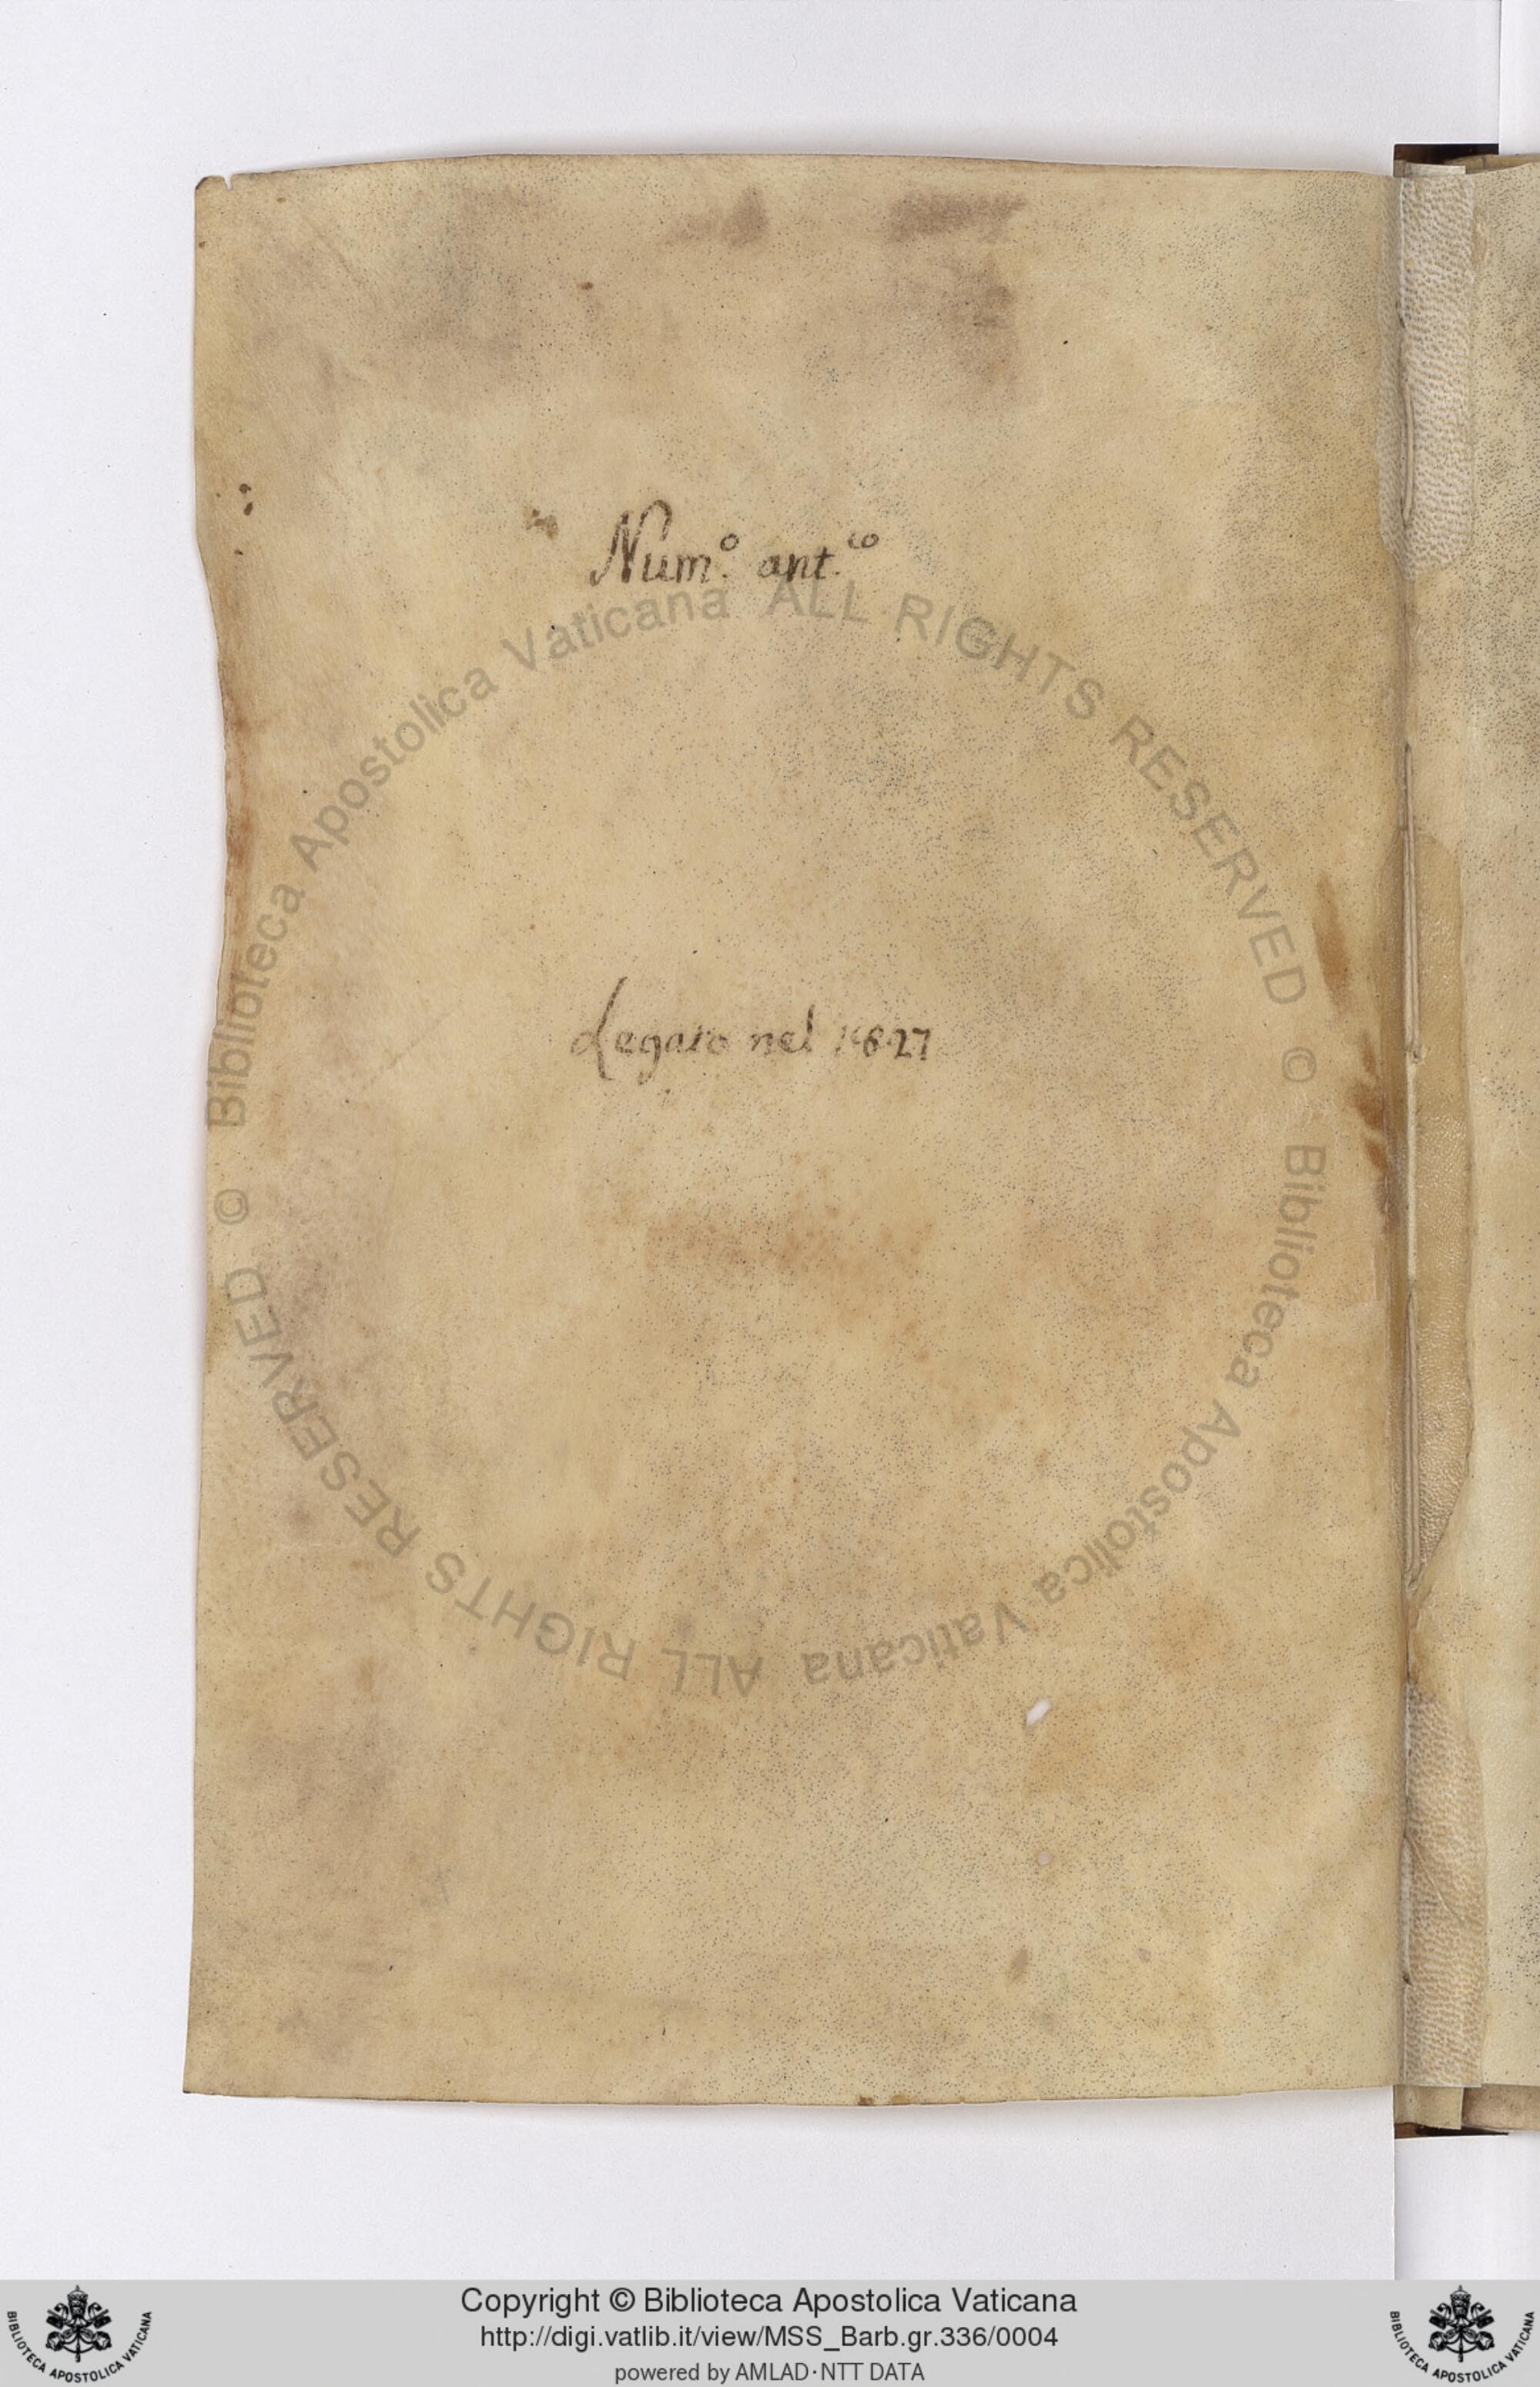 Num.º ant.ico
Legato nel 1827
© Biblioteca Apostolica Vaticana ALL RIGHTS RESERVED
© Biblioteca Apostolica Vaticana ALL RIGHTS RESERVED
Copyright © Biblioteca Apostolica Vaticana
http://digi.vatlib.it/view/MSS_Barb.gr.336/0004
powered by AMLAD·NTT DATA
BIBLIOTECA APOSTOLICA VATICANA
BIBLIOTECA APOSTOLICA VATICANA